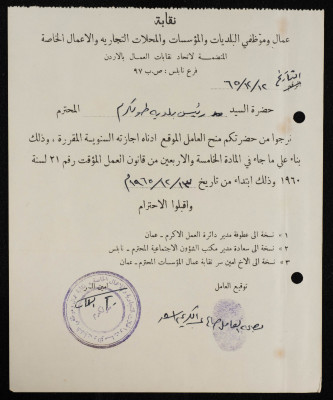 نقابة
عمال وموظفي البلديات والمؤسسات والمحلات التجاريه والاعمال الخاصة
المنضمة لاتحاد نقابات العمال بالاردن
فرع نابلس : ص.ب ٩٧
التاريخ
٦٥/٢/١٢
حضرة السيد رئيس بلدية طولكرم المحترم
نرجوا من حضرتكم منح العامل الموقع ادناه اجازته السنوية المقررة ، وذلك
بناء على ما جاء في المادة الخامسة والاربعين من قانون العمل المؤقت رقم ٢١ لسنة
١٩٦٠ وذلك ابتداء من تاريخ ١٩٦٥/٢/١٣م
واقبلوا الاحترام
١ ؛ نسخة الى عطوفة مدير دائرة العمل الاكرم - عمان
٢ ؛ نسخة الى سعادة مدير مكتب الشؤون الاجتماعية المحترم - نابلس
٣ ؛ نسخة الى الاخ امين سر نقابة عمال المؤسسات المحترم - عمان
توقيع العامل
امين السر